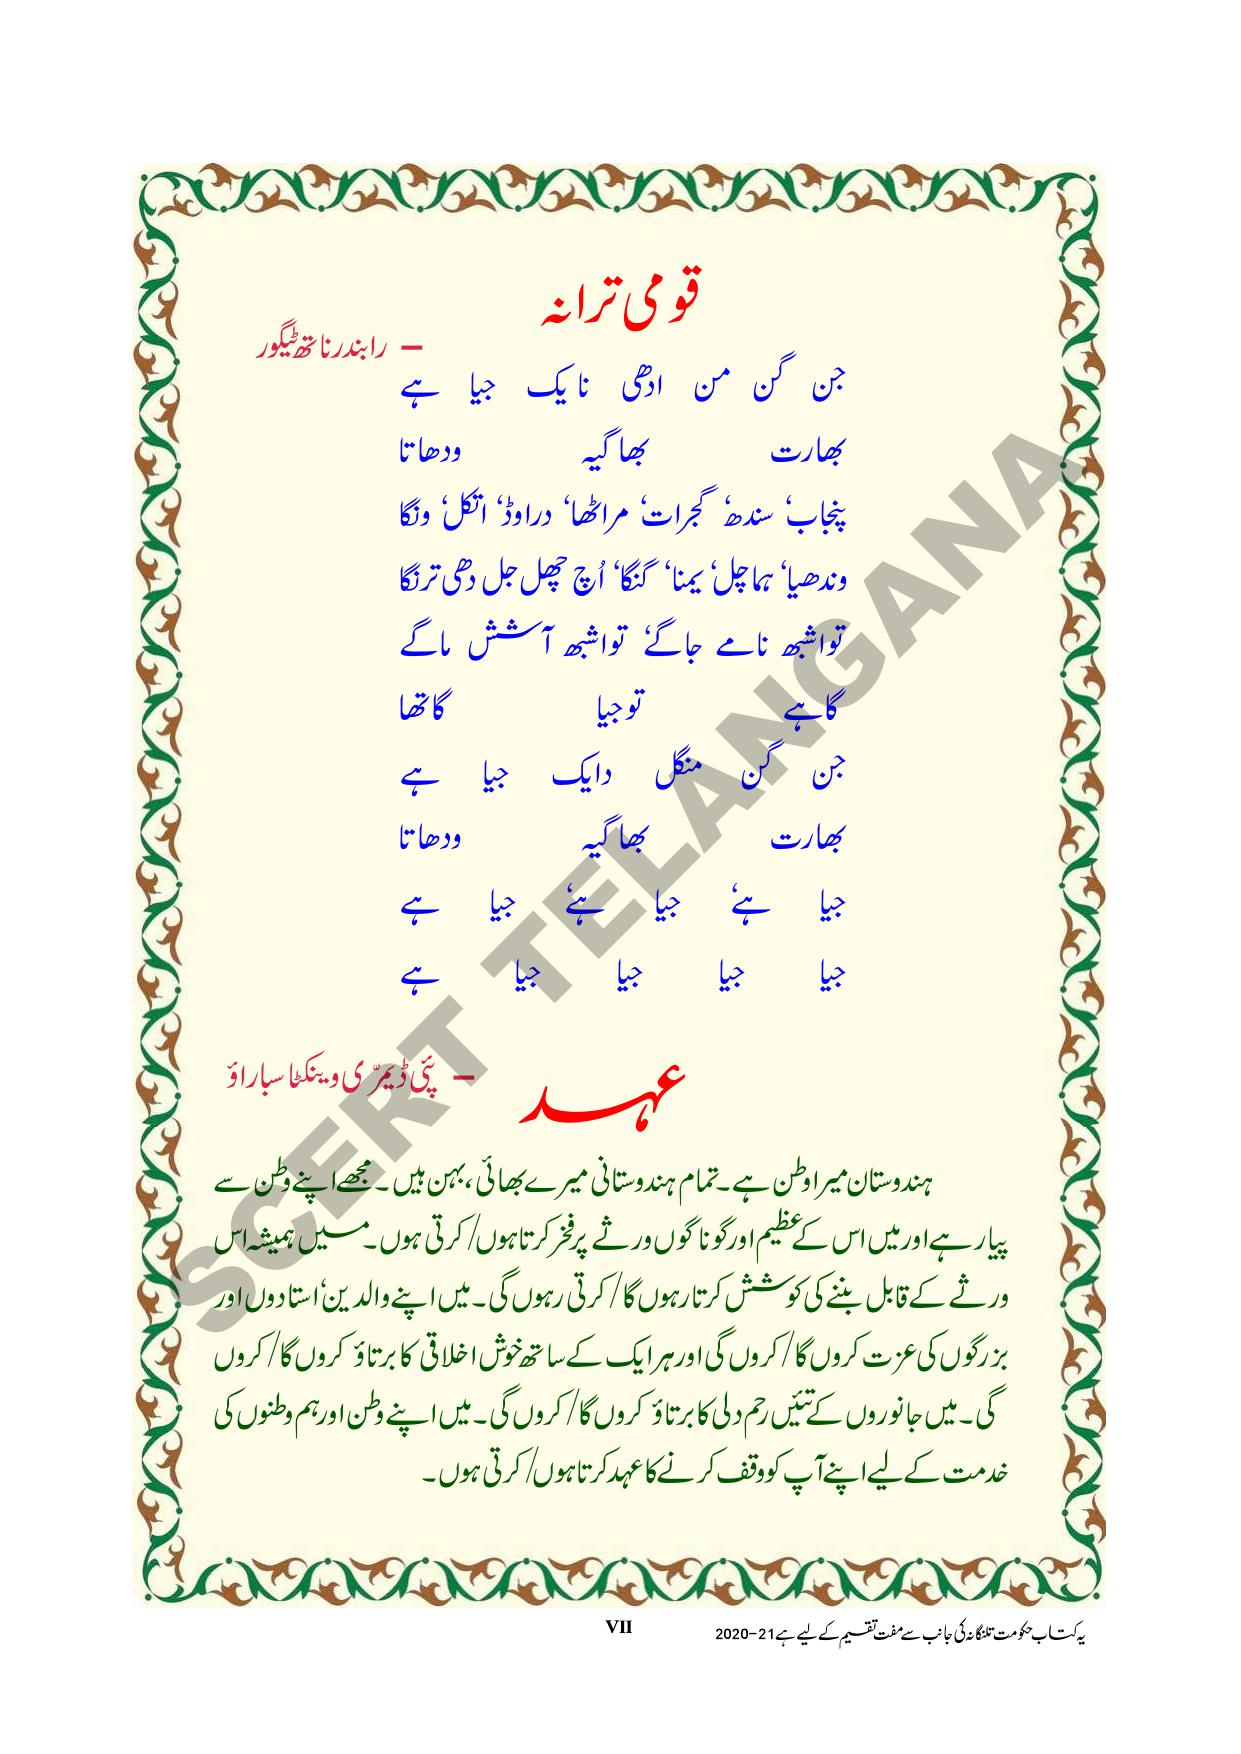 قومی ترانہ
— رابندر ناتھ ٹیگور
جن گن من ادھی نایک جیا ہے
بھارت بھاگیہ ودھاتا
پنجاب‘ سندھ‘ گجرات‘ مراٹھا‘ دراوڈ‘ اتکل‘ ونگا
وندھیا‘ ہماچل‘ یمنا‘ گنگا‘ اُچ چھل جل دھی ترنگا
تواشبھ نامے جاگے‘ تواشبھ آشش ماگے
گاہے توجیا گاتھا
جن گن منگل دایک جیا ہے
بھارت بھاگیہ ودھاتا
جیا ہے‘ جیا ہے‘ جیا ہے
جیا جیا جیا جیا ہے
عہد
— پئی ڈیمرّی وینکٹا سباراؤ
ہندوستان میرا وطن ہے۔ تمام ہندوستانی میرے بھائی، بہن ہیں۔ مجھے اپنے وطن سے
پیار ہے اور میں اس کے عظیم اور گوناگوں ورثے پر فخر کرتا ہوں/ کرتی ہوں۔ میں ہمیشہ اس
ورثے کے قابل بننے کی کوشش کرتا رہوں گا/ کرتی رہوں گی۔ میں اپنے والدین‘ استادوں اور
بزرگوں کی عزت کروں گا/ کروں گی اور ہر ایک کے ساتھ خوش اخلاقی کا برتاؤ کروں گا/ کروں
گی۔ میں جانوروں کے تئیں رحم دلی کا برتاؤ کروں گا/ کروں گی۔ میں اپنے وطن اور ہم وطنوں کی
خدمت کے لیے اپنے آپ کو وقف کرنے کا عہد کرتا ہوں/ کرتی ہوں۔
SCERT TELANGANA
VII
یہ کتاب حکومت تلنگانہ کی جانب سے مفت تقسیم کے لیے ہے 2020-21